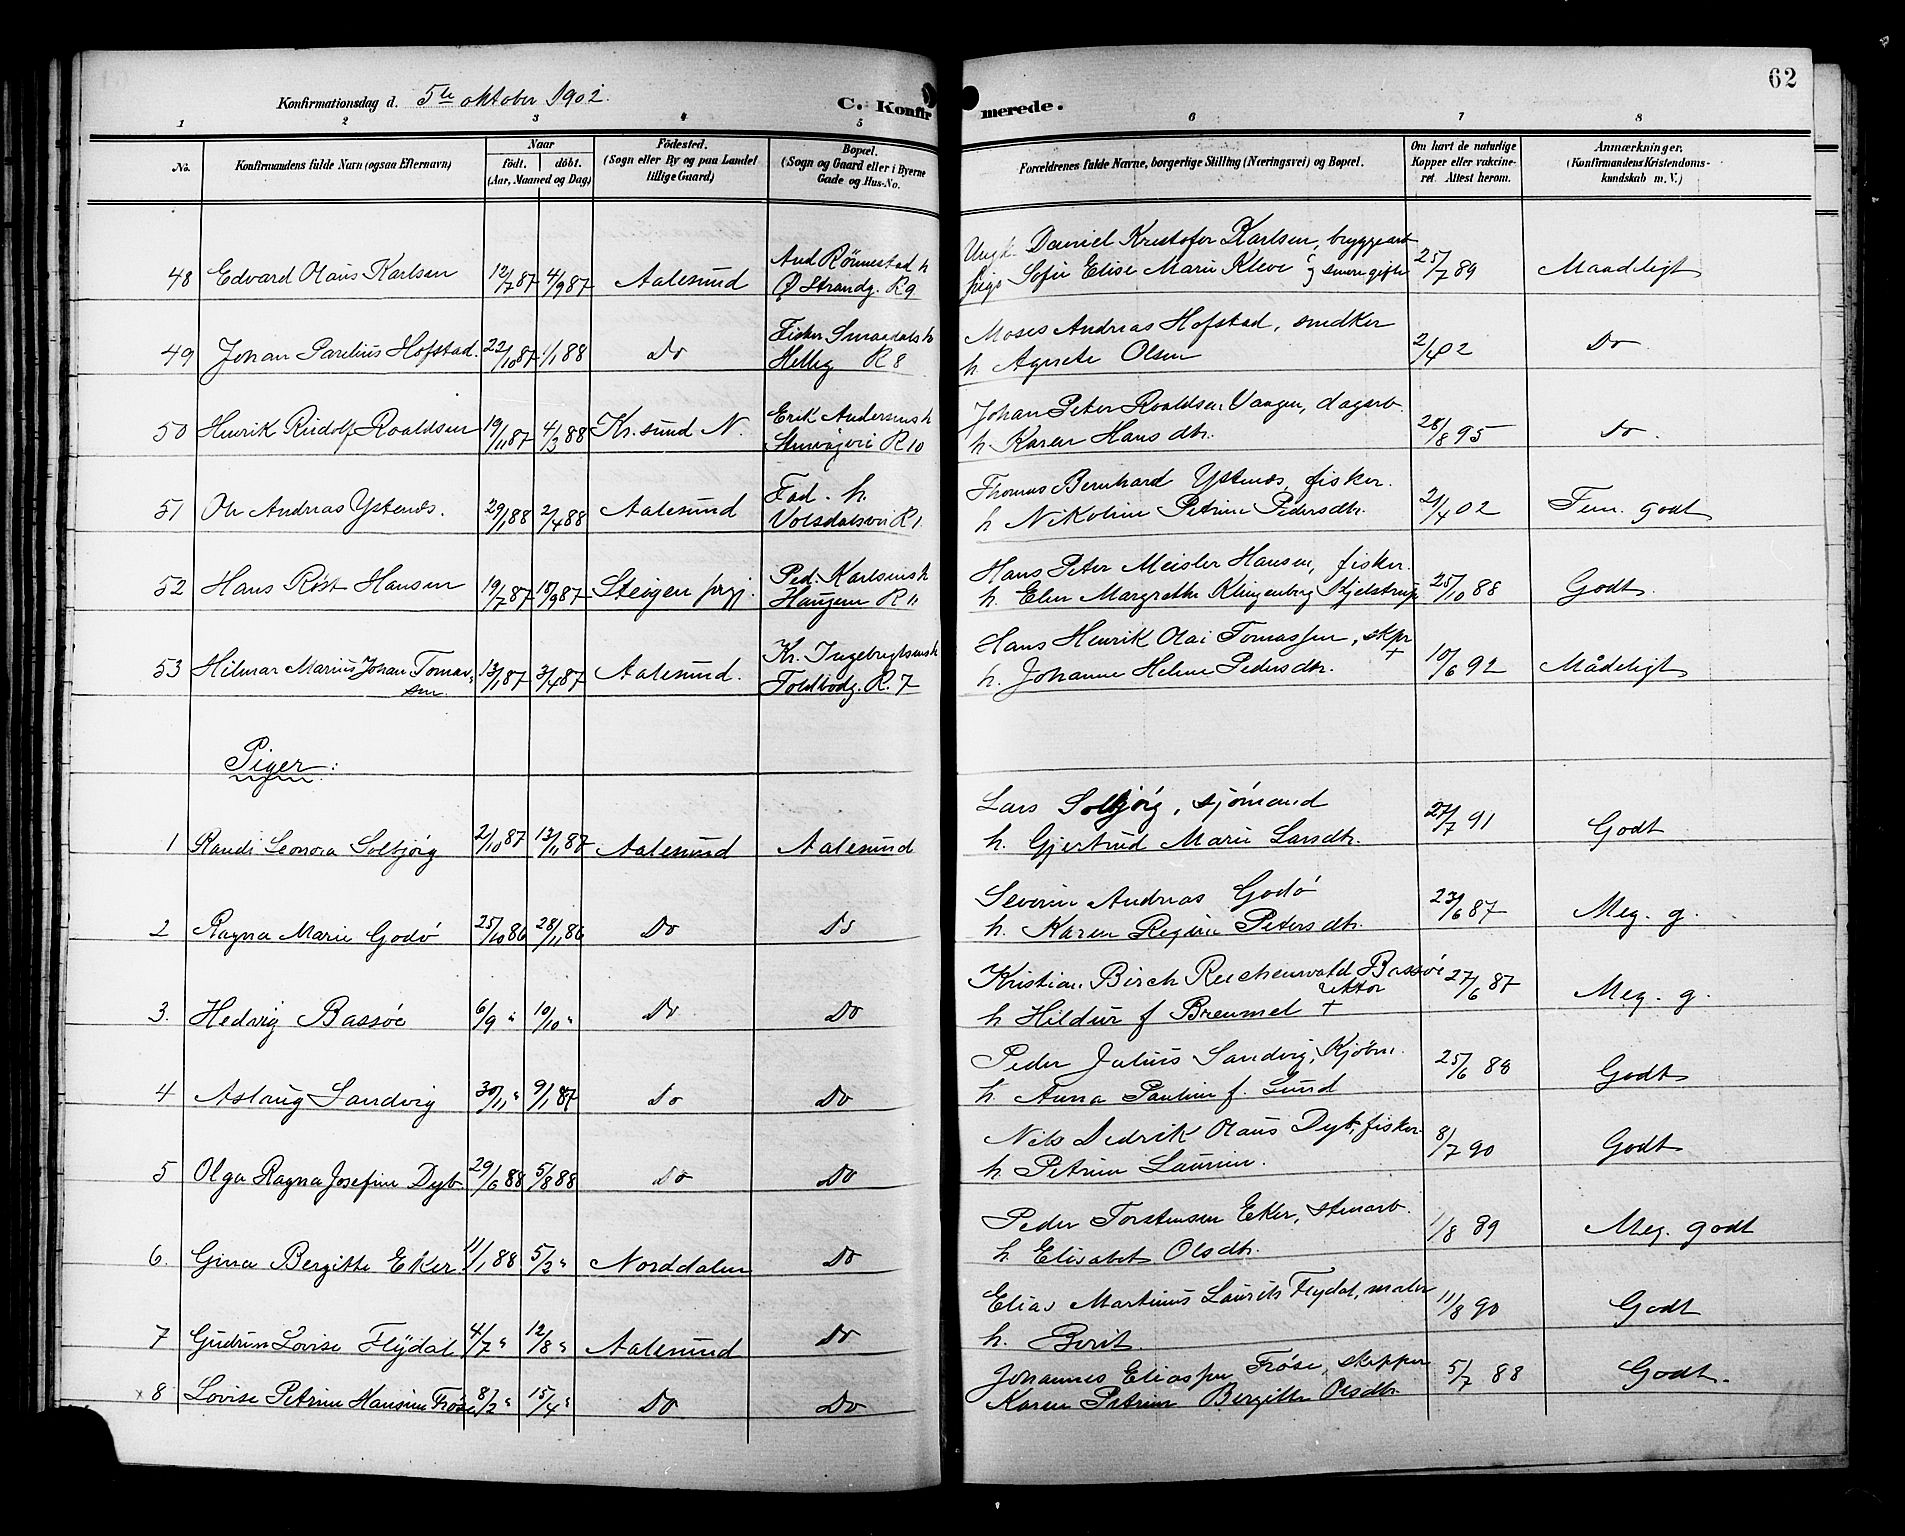 62
Konfirmationsdag d. 5te oktober 1902.
C. Konfirmerede.
1 2 3 4 5 6 7 8
No. Konfirmandens fulde Navn (ogsaa Efternavn) Naar født. døbt. (Aar, Maaned og Dag) Fødested. (Sogn eller By og paa Landet tillige Gaard) Bopæl. (Sogn og Gaard eller i Byerne Gade og Hus-No. Forældrenes fulde Navne, borgerlige Stilling (Næringsvei) og Bopæl. Om havt de naturlige Kopper eller vakcineret. Attest herom. Anmærkninger. (Konfirmandens Kristendomskundskab m. V.)
And Rönnestad h Ungk. Daniel Kristofer Karlsen, bryggearb
48 Edvard Olaus Karlsen 12/7 87 4/9 87 Aalesund Ø Strandg. R 9 pige Sofie Elise Marie Kleve og senere gifte 25/7 89 Maadeligt
Fisker Smaadals h Moses Andreas Hofstad, snedker
49 Johan Parelius Hofstad. 22/10 87 1/1 88 Do Helleg R 8 h. Agnete Olsen 2/4 02 Do
Erik Andersens h Johan Peter Roaldsen Vaagen, dagarb.
50 Henrik Rudolf Roaldsen 19/11 87 4/3 88 Kr. sund N. R 10 h. Karen Hansdtr. 28/8 95 Do.
Fad. h. Thomas Bernhard Ystenes, fisker.
51 Ole Andreas Ystenes. 29/1 88 2/4 88 Aalesund Volsdalsvei R 1. h Nikoline Petrine Pedersdtr. 21/4 02 Tem. godt
Ped. Karlsens h Hans Peter Meisler Hansen, fisker.
52 Hans Rist Hansen 19/7 87 18/9 87 Steigen prgj. Haugen R 11 h. Elen Margrethe Klingenberg Kjelstrup 25/10 88 Godt.
Kr. Ingebrigtsens h Hans Henrik Olai Tomassen, skpr +
53 Hilmar Marius Johan Tomassen 13/1 87 3/4 87 Aalesund. Toldbodg. R. 7 h. Johanne Helene Pedersdtr. 10/6 92 Mådeligt
Piger:
Lars Solbjörg, sjömand
1 Randi Leonora Solbjörg 2/10 87 13/11 87 Aalesund Aalesund h. Gjertrud Marie Larsdtr. 27/7 91 Godt
Severin Andreas Godö
2 Ragna Marie Godö 25/10 86 28/11 86 Do Do h. Karen Regine Petersdtr. 23/6 87 Meg. g.
Kristian Birch Reichenwald Bassöe rektor
3. Hedvig Bassöe 6/9 " 10/10 " Do Do h Hildur f Breumel + 27/6 87 Meg. g.
Peder Julius Sandvig, Kjöbm.
4 Aslaug Sandvig 30/11 " 9/1 87 Do Do h. Anna Pauline f. Lund 25/6 88 Godt
Nils Didrik Olaus Dyb, fisker
5 Olga Ragna Josefine Dyb. 29/6 88 5/8 88 Do Do h Petrine Laurine. 8/7 90 Godt
Peder Torstensen Eker, stenarb.
6. Gina Bergitte Eker 11/1 88 5/2 " Norddalen Do h Elisabet Olsdtr. 1/8 89 Meg. godt
Elias Martinus Laurits Flydal, maler
7 Gudrun Lovise Flydal 4/7 " 12/8 " Aalesund Do h. Berit. 11/8 90 Godt
Johannes Eliassen Fröse, skipper
x 8 Lovise Petrine Hansine Fröse 8/2 " 15/4 " Do Do Karen Petrine Bergitte Olsdtr. 5/7 88 Godt.